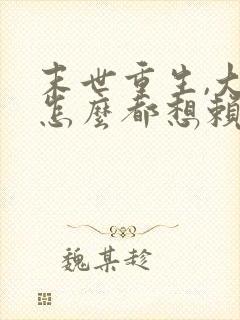 末世重生,大
怎麼都想賴
魏某趁